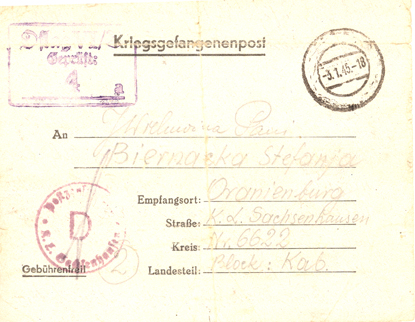 Kriegsgefangenenpost
Geprüft:
4
a
-3.1.45.-18
An
Biernacka Stefanja
Empfangsort: Oranienburg
Straße: K. L. Sachsenhausen
Kreis: Nr. 6622
Landesteil: Block: Kab.
D
K. L. Sachsenhausen
Gebührenfrei
2